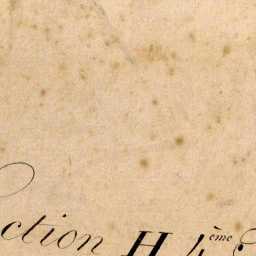 ction H 4ème